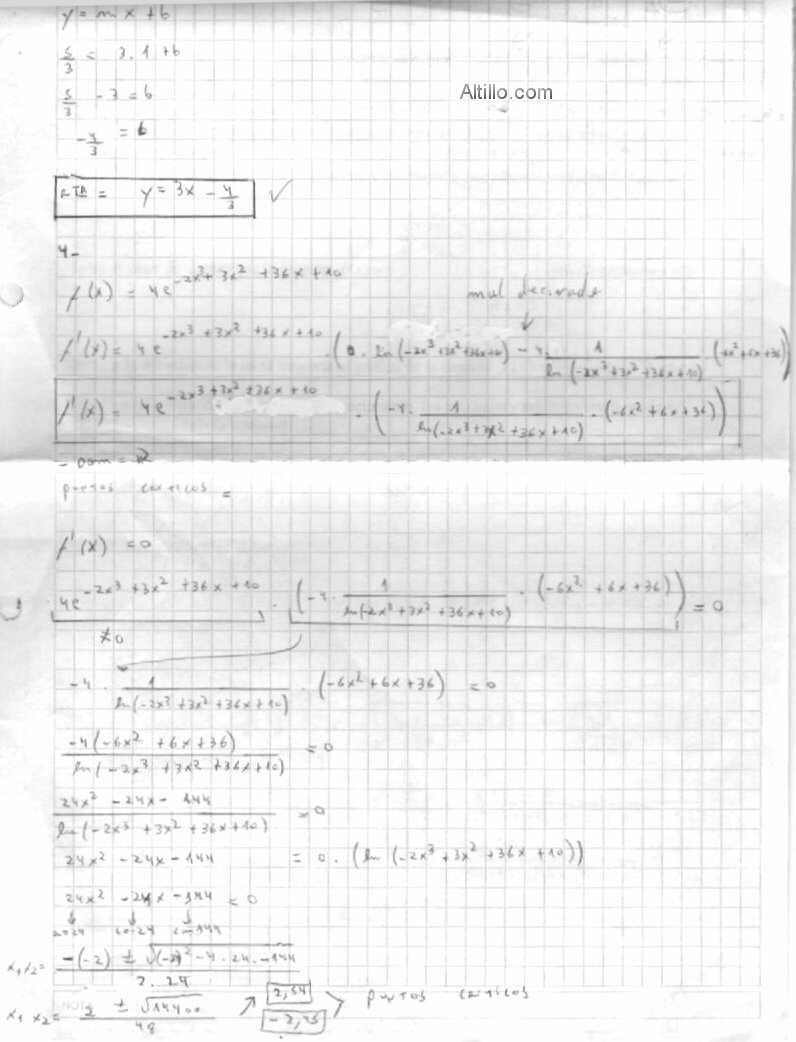 y = mx + b
Altillo.com
5/3 = 3.1 + b
5/3 - 3 = b
-4/3 = b
RTA = y = 3x - 4/3 ✓
4-
f(x) = 4e^(-2x³ + 3x² + 36x + 10)
mal derivada
f'(x) = 4e^(-2x³ + 3x² + 36x + 10) . (0 . ln(-2x³ + 3x² + 36x + 10) - 4 . 1/ln(-2x³ + 3x² + 36x + 10) . (-6x² + 6x + 36))
f'(x) = 4e^(-2x³ + 3x² + 36x + 10) . (-4 . 1/ln(-2x³ + 3x² + 36x + 10) . (-6x² + 6x + 36))
- Dom = ℝ
puntos criticos =
f'(x) = 0
4e^(-2x³ + 3x² + 36x + 10) . (-4 . 1/ln(-2x³ + 3x² + 36x + 10) . (-6x² + 6x + 36)) = 0
≠0
-4 . 1/ln(-2x³ + 3x² + 36x + 10) . (-6x² + 6x + 36) = 0
-4(-6x² + 6x + 36)/ln(-2x³ + 3x² + 36x + 10) = 0
24x² - 24x - 144/ln(-2x³ + 3x² + 36x + 10) = 0
24x² - 24x - 144 = 0 . (ln(-2x³ + 3x² + 36x + 10))
24x² - 24x - 144 = 0
a=24 b=-24 c=-144
x₁x₂ = -(-2) ± √((-2)² - 4 . 24 . -144)/2 . 24
x₁ x₂ = 2 ± √14400/48 2,54 -2,45 puntos criticos